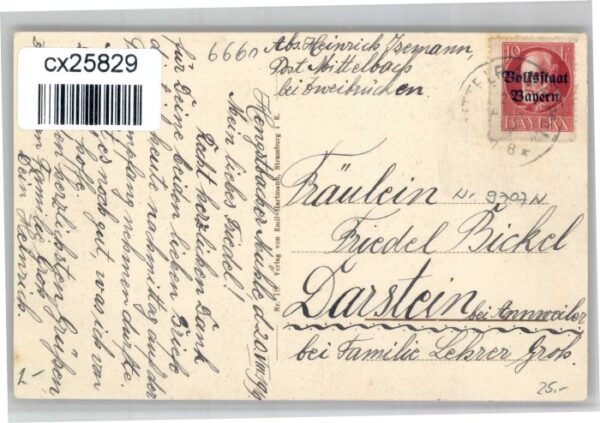 cx25829
6660
Abs. Heinrich Isemann,
Post Mittelbach
bei Zweibrücken.
10 Pf
Volksstaat
Bayern
BAYERN
MITTELB
Hengstbacher Mühle, d. 20.VIII.19
Mein lieber Friedel!
Recht herzlichen Dank
für Deine beiden lieben Briefe
die ich heute nachmittag auf der
Empfang nehmen durfte.
es noch gut, was ich von
hoffe.
den herzlichsten Grüßen,
Familie Groß
Dein Heinrich.
Verlag von Emil Hartmann, Strassburg i. E.
Fräulein
Nr. 9707 N
Friedel Bickel
Darstein bei Annweiler
bei Familie Lehrer Groß.
1,-
25,-